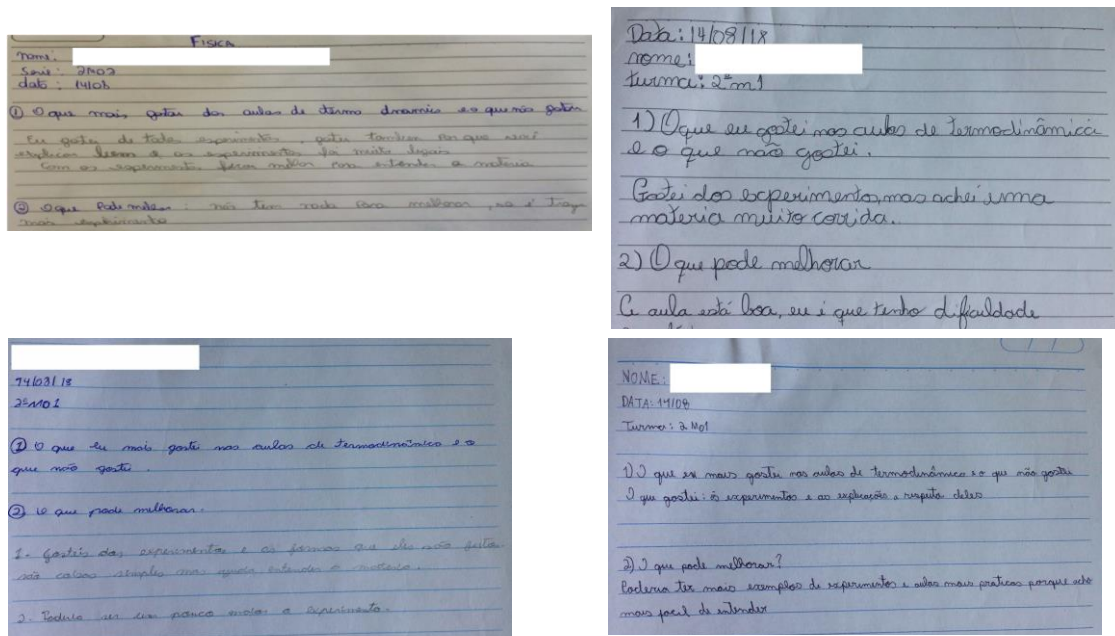 FISICA
nome:
Serie: 2M02
data: 14/08
① O que mais gostou das aulas de termo dinamica e o que não gostou
Eu gostei de todos experimentos, gostei tambem por que você
explicou bem e os experimentos foi muito legais
Com os experimentos ficou melhor pra entender a matéria
② O que pode melhorar: não tem nada para melhorar, so é trazer
mais experimentos
Data: 14/08/18
nome:
turma: 2ªm1
1) O que eu gostei nas aulas de termodinâmica
e o que não gostei.
Gostei dos experimento, mas achei uma
materia muito corrida.
2) O que pode melhorar
A aula está boa, eu é que tenho dificuldade
14/08/18
2ºM01
① O que eu mais gostei nas aulas de termodinâmica e o
que não gostei.
② O que pode melhorar.
1- Gosteis dos experimentos e as formas que eles são feitos
são coisas simples mas ajuda entender a materia.
2- Poderia ser um pouco maior o experimento.
NOME:
DATA: 14/08
Turma: 2M01
1) O que eu mais gostei nas aulas de termodinâmica e o que não gostei
O que gostei: os experimentos e as explicações a respeito deles
2) O que pode melhorar?
Poderia ter mais exemplos de experimentos e aulas mais praticas porque acho
mais facil de entender